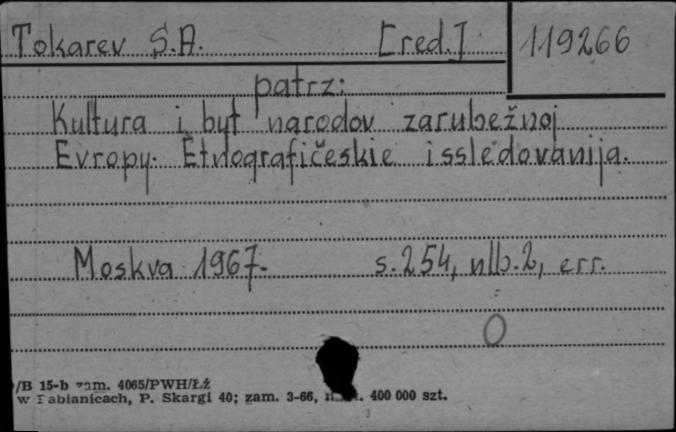 Tokarev S.A. [red.] 119266
patrz:
Kultura i byt narodov zarubežnoj
Evropy. Ètnografičeskie issledovanija.
Moskva 1967. s. 254, nlb. 2, err.
/B 15-b zam. 4065/PWH/Łź
w Pabianicach, P. Skargi 40; zam. 3-66, 400 000 szt.